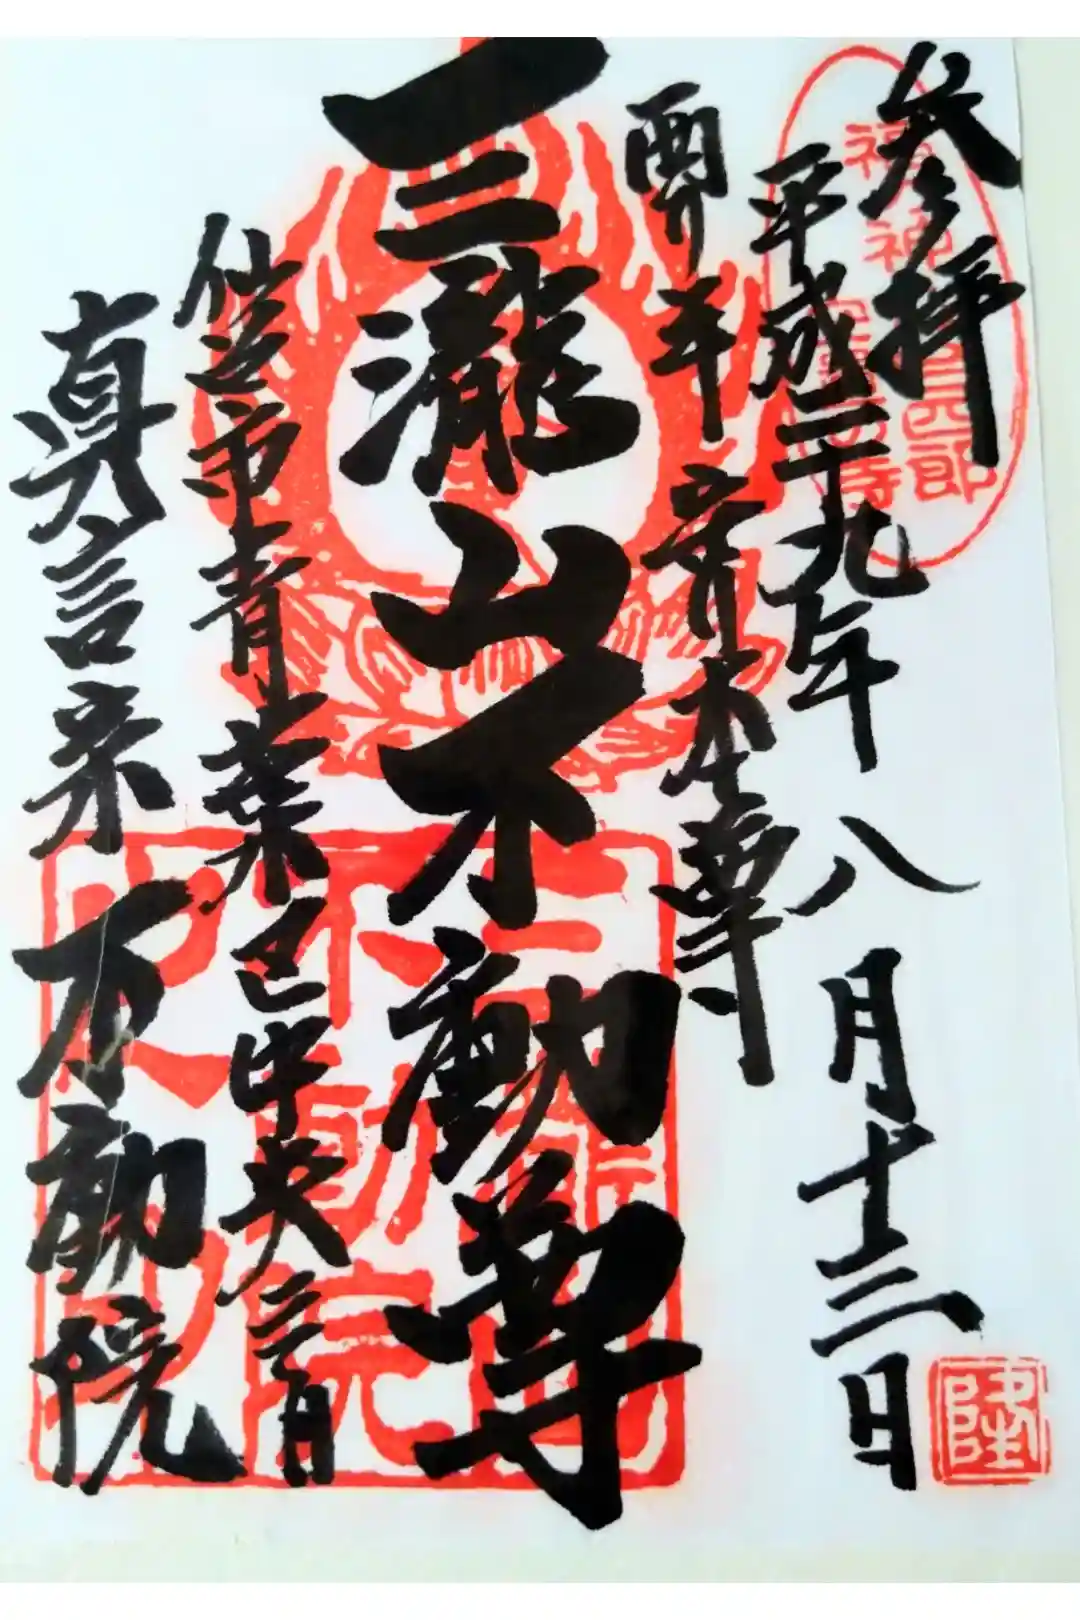 参拝
平成二十九年八月十三日
酉年 守本尊
三瀧山不動尊
仙台市青葉区中央二丁目
真言宗 不動院